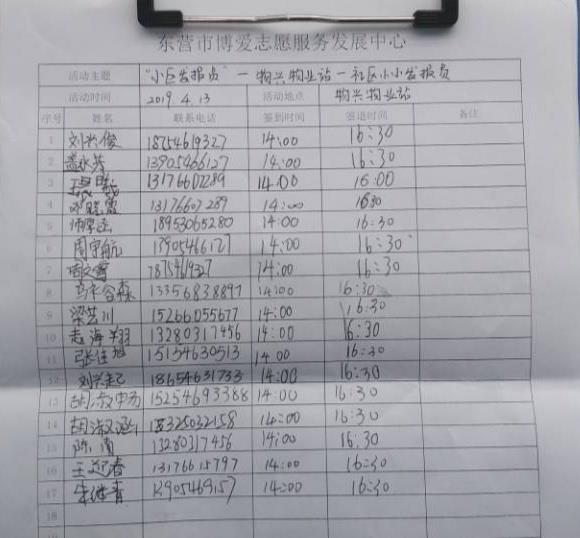 东营市博爱志愿服务发展中心
活动主题 "小区发报员"—物兴物业站—社区小小发报员
活动时间 2019.4.13 活动地点 物兴物业站
序号 姓名 联系电话 签到时间 签退时间 备注
1 刘兴俊 18754619327 14:00 16:30
2 13905466127 14:00 16:30
3 13176607289 14:00 16:00
4 邓晓霞 13176607289 14:00 16:30
5 18953065280 14:00 16:30
6 周宇航 13905466127 14:00 16:30
7 18754619327 14:00 16:30
8 13356838897 14:00 16:30
9 梁艺川 15266055677 14:00 16:30
10 赵海翔 13280317456 14:00 16:30
11 张佳旭 15154630513 14:00 16:30
12 刘兴起 18654631733 14:00 16:30
13 15254693388 14:00 16:30
14 胡淑涵 15325032158 14:00 16:30
15 陈南 13280317456 14:00 16:30
16 王迎春 13176615797 14:00 16:30
17 14:00 16:30
18